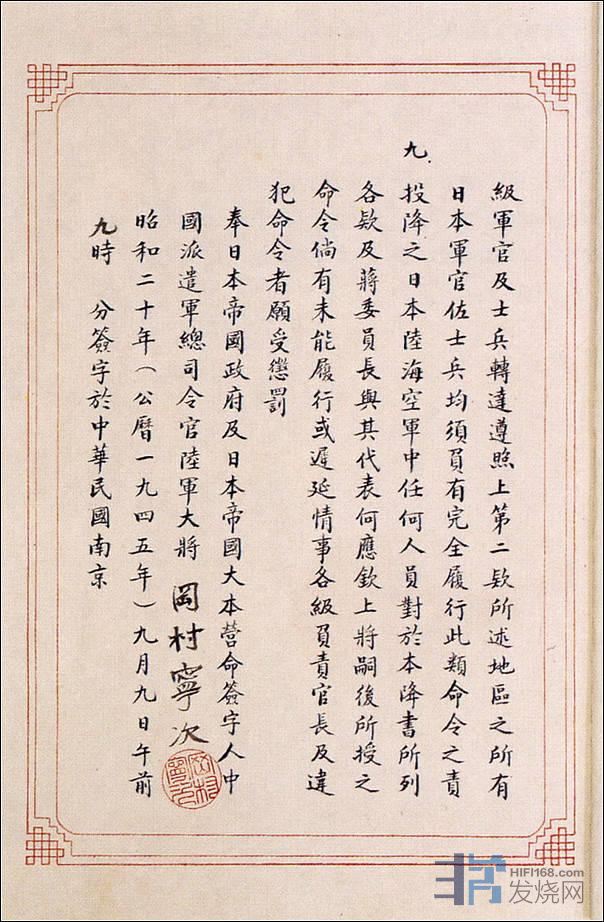 級軍官及士兵轉達遵照上第二款所述地區之所有
日本軍官佐士兵均須負有完全履行此類命令之責
九
投降之日本陸海空軍中任何人員對於本降書所列
各款及蔣委員長與其代表何應欽上將嗣後所授之
命令倘有未能履行或遲延情事各級負責官長及違
犯命令者願受懲罰
奉日本帝國政府及日本帝國大本營命簽字人中
國派遣軍總司令官陸軍大將 岡村寧次
昭和二十年(公曆一九四五年)九月九日午前
九時 分簽字於中華民國南京
HIFI168.com
发烧网